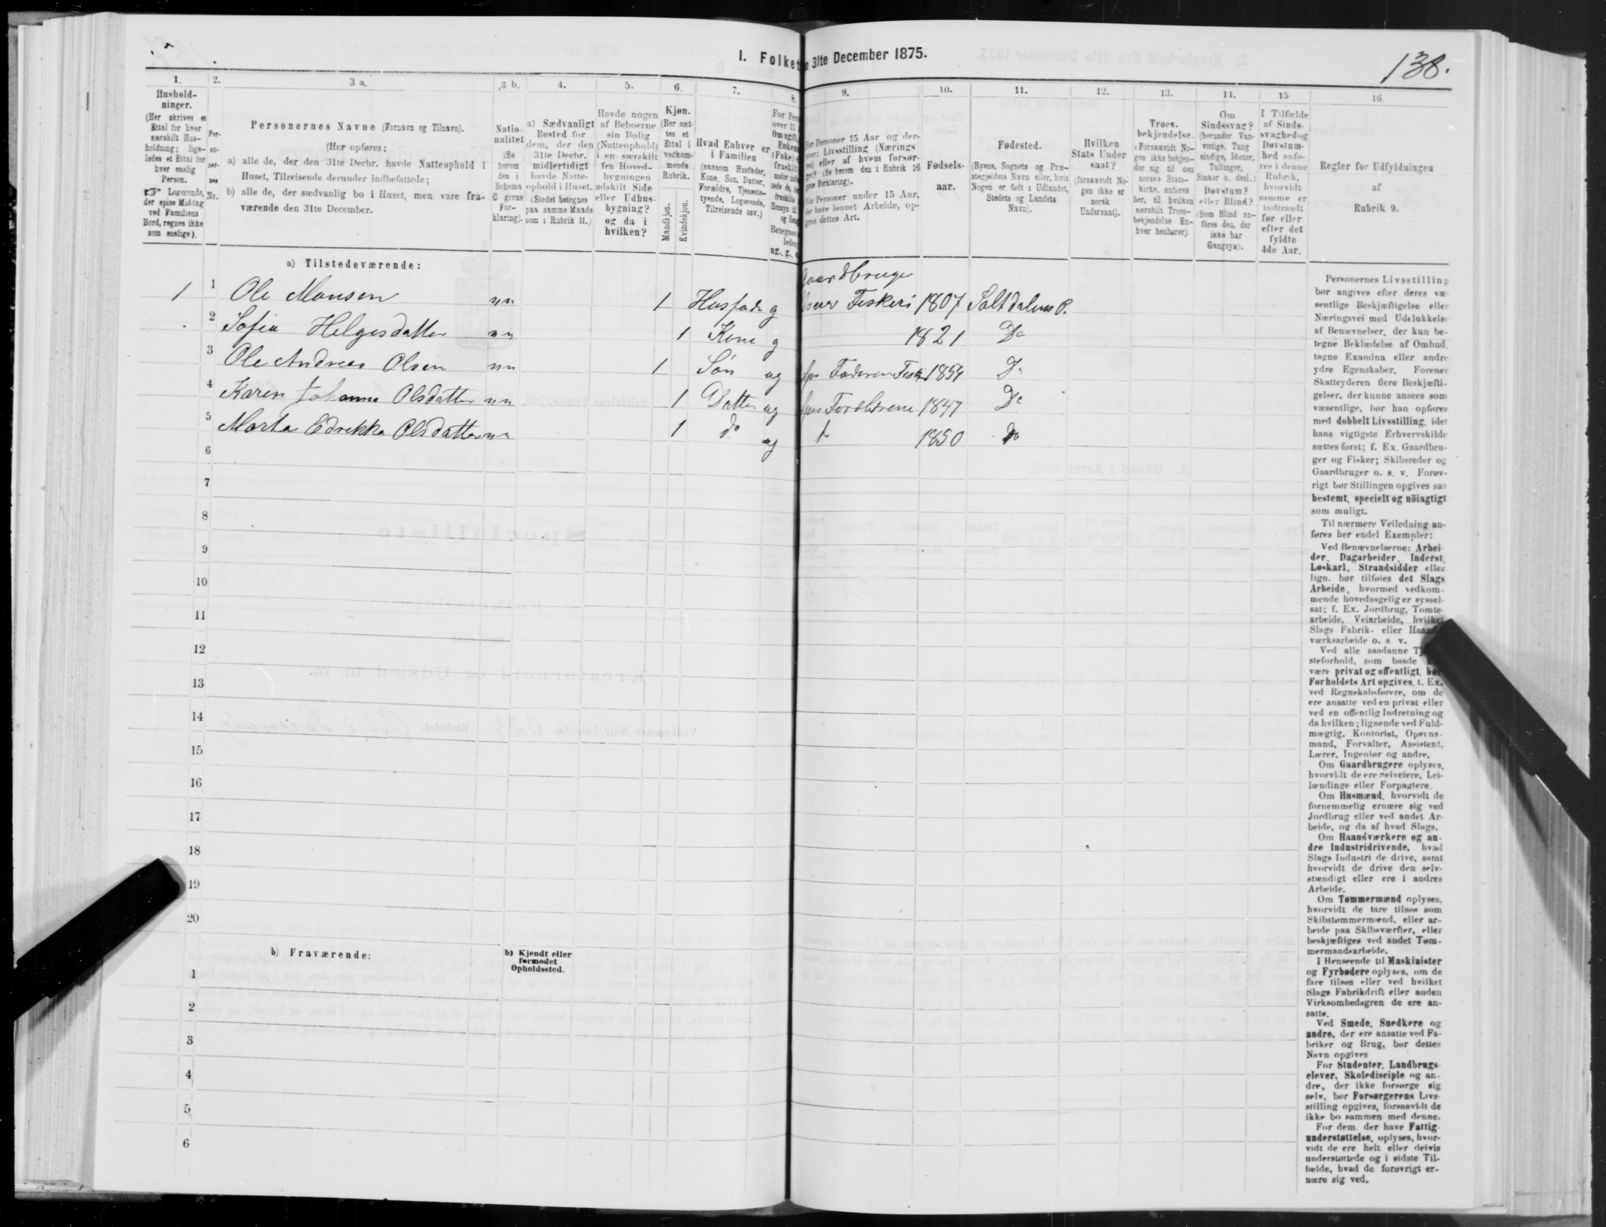 I. Folket
n 31te December 1875.
138.
1.
2.
3 a.
3 b.
4.
5.
6.
7.
8.
9.
10.
11.
12.
13.
14.
15
16.
Hushold-
ninger.
(Her skrives et
Ettal for hver
særskilt Hus-
holdning; lige-
ledes et Ettal for
hver enslig
Person.
☞ Logerende,
der spise Middag
ved Familiens
Bord, regnes ikke
som enslige).
Personernes Navne (Fornavn og Tilnavn).
(Her opføres:
a) alle de, der den 31te Decbr. havde Natteophold i
Huset, Tilreisende derunder indbefattede;
b) alle de, der sædvanlig bo i Huset, men vare fra-
værende den 31te December.
Natio-
nalitet
(Se
herom
den i
Schema
C givne
For-
klaring).
a) Sædvanligt
Bosted for
dem, der den
31te Decbr.
midlertidigt
havde Natte-
ophold i Huset.
(Stedet betegnes
paa samme Maade
som i Rubrik 11.)
Havde nogen
af Beboerne
sin Bolig
(Natteophold)
i en særskilt
fra Hoved-
bygningen
adskilt Side
eller Udhus-
bygning?
og da i
hvilken?
Kjøn.
(Her sæt-
tes et
Ettal i
vedkom-
mende
Rubrik.
Mandkjøn.
Kvindekjøn.
Hvad Enhver er
i Familien
(saasom Husfader,
Kone, Søn, Datter,
Forældre, Tjeneste-
tyende, Logerende,
Tilreisende osv.)
For Personer 15 Aar og der-
over: Livsstilling (Nærings-
vei) eller af hvem forsør-
get? (Se herom den i Rubrik 16
givne Forklaring).
For Personer under 15 Aar,
der have lønnet Arbeide, op-
gives dettes Art.
Fødsels-
aar.
Fødested.
(Byens, Sognets og Præ-
stegjeldets Navn eller, hvis
Nogen er født i Udlandet,
Stedets og Landets
Navn).
Hvilken
Stats Under
saat?
(forsaavidt No-
gen ikke er
norsk
Undersaat).
Troes-
bekjendelse.
(Forsaavidt No-
gen ikke bekjen-
der sig til den
norske Stats-
kirke, anføres
her, til hvilken
særskilt Troes-
bekjendelse En-
hver henhører).
Om
Sindssvag?
(herunder Van-
vittige, Tung
sindige, Idioter,
Tullinger,
Sinker o. desl.)
Døvstum?
eller Blind?
(Som Blind an-
føres den, der
ikke har
Gangsyn).
I Tilfælde
af Sinds-
svaghed og
Døvstum-
hed anfø-
res i denne
Rubrik,
hvorvidt
samme er
indtraadt
før eller
efter det
fyldte
4de Aar.
Regler for Udfyldningen
af
Rubrik 9.
a) Tilstedeværende:
Gaardbruge
1 1 Ole Monsen nn 1 Husfader g Fiskeri 1807 Saltdalens P.
2 Sofia Helgesdatter nn 1 Kone g 1821 Do
3 Ole Andreas Olsen nn 1 Søn ug Faderen 1854 Do
4 Karen Johanna Olsdatter nn 1 Datter ug Forældrene 1847 Do
5 Marta Edrikka Olsdatter nn 1 do ug 1850 Do
6
7
8
9
10
11
12
13
14
15
16
17
18
19
20
b) Fraværende:
b) Kjendt eller
formodet
Opholdssted.
1
2
3
4
5
6
Personernes Livsstilling
bør angives efter deres væ-
sentlige Beskjæftigelse eller
Næringsvei med Udelukkelse
af Benævnelser, der kun be-
tegne Beklædelse af Ombud,
tagne Examina eller andre
ydre Egenskaber. Forener
Skatteyderen flere Beskjæfti-
gelser, der kunne ansees som
væsentlige, bør han opføres
med dobbelt Livsstilling, idet
hans vigtigste Erhvervskilde
sættes først; f. Ex. Gaardbru-
ger og Fisker; Skibsreder og
Gaardbruger o. s. v. Forøv-
rigt bør Stillingen opgives saa
bestemt, specielt og nöiagtigt
som muligt.
Til nærmere Veiledning an-
føres her endel Exempler:
Ved Benævnelserne: Arbei-
der, Dagarbeider, Inderst,
Løskarl, Strandsidder eller
lign. bør tilføies det Slags
Arbeide, hvormed vedkom-
mende hovedsagelig er syssel-
sat; f. Ex. Jordbrug, Tomte-
arbeide, Veiarbeide, hvilket
Slags Fabrik- eller
værksarbeide o. s. v.
Ved alle saadanne
steforhold, som baade
være privat og offentligt,
Forholdets Art opgives, t. Ex.
ved Regnskabsførere, om de
ere ansatte ved en privat eller
ved en offentlig Indretning og
da hvilken; lignende ved Fuld-
mægtig, Kontorist, Opsyns-
mand, Forvalter, Assistent,
Lærer, Ingeniør og andre.
Om Gaardbrugere oplyses,
hvorvidt de ere Selveiere, Lei-
lændinge eller Forpagtere.
Om Husmænd, hvorvidt de
fornemmelig ernære sig ved
Jordbrug eller ved andet Ar-
beide, og da af hvad Slags.
Om Haandværkere og an-
dre Industridrivende, hvad
Slags Industri de drive, samt
hvorvidt de drive den selv-
stændigt eller ere i andres
Arbeide.
Om Tømmermænd oplyses,
hvorvidt de fare tilsøs som
Skibstømmermænd, eller ar-
beide paa Skibsværfter, eller
beskjæftiges ved andet Tøm-
mermandsarbeide.
I Henseende til Maskinister
og Fyrbødere oplyses, om de
fare tilsøs eller ved hvilket
Slags Fabrikdrift eller anden
Virksomhedsgren de ere an-
satte.
Ved Smede, Snedkere og
andre, der ere ansatte ved Fa-
briker og Brug, bør dettes
Navn opgives
For Studenter, Landbrugs-
elever, Skoledisciple og an-
dre, der ikke forsørge sig
selv, bør Forsørgerens Livs-
stilling opgives, forsaavidt de
ikke bo sammen med denne.
For dem, der have Fattig-
understøttelse, oplyses, hvor-
vidt de ere helt eller delvis
understøttede og i sidste Til-
fælde, hvad de forøvrigt er-
nære sig ved.